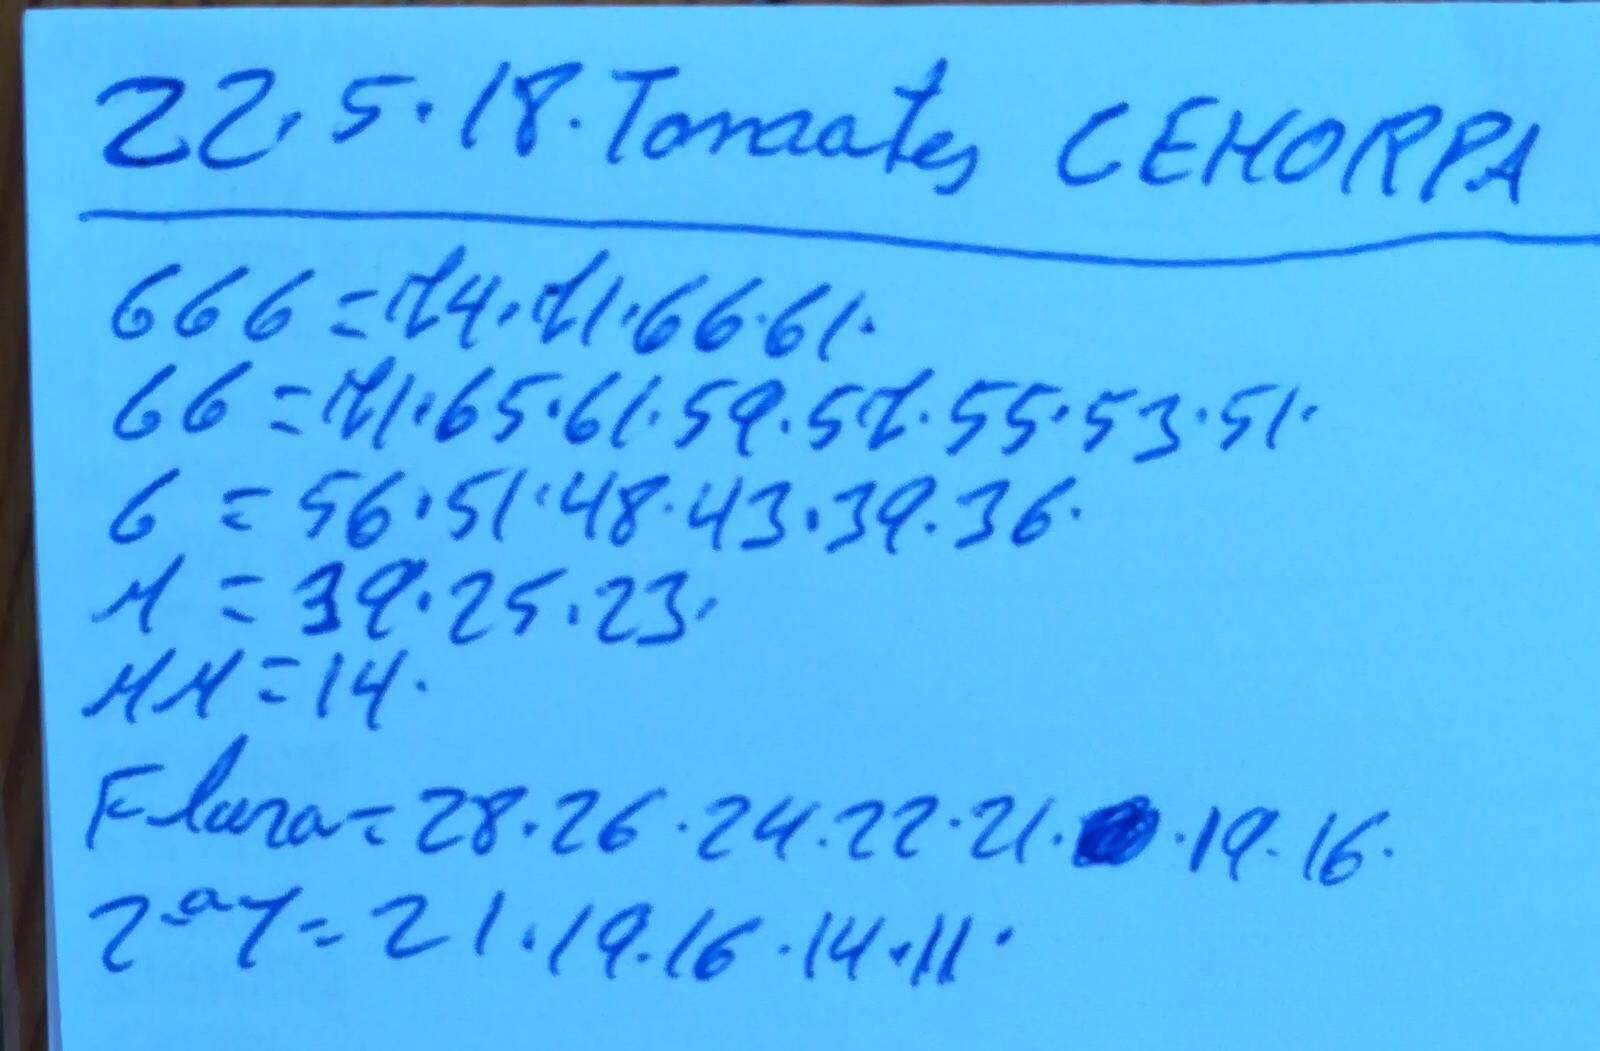 22.5.18.Tomates CEHORPA
GGG=74.71.66.61.
GG=71.65.61.59.57.55.53.51.
G=56.51.48.43.39.36.
M=39.25.23.
MM=14.
Flora=28.26.24.22.21. .19.16.
2ªY=21.19.16.14.11.